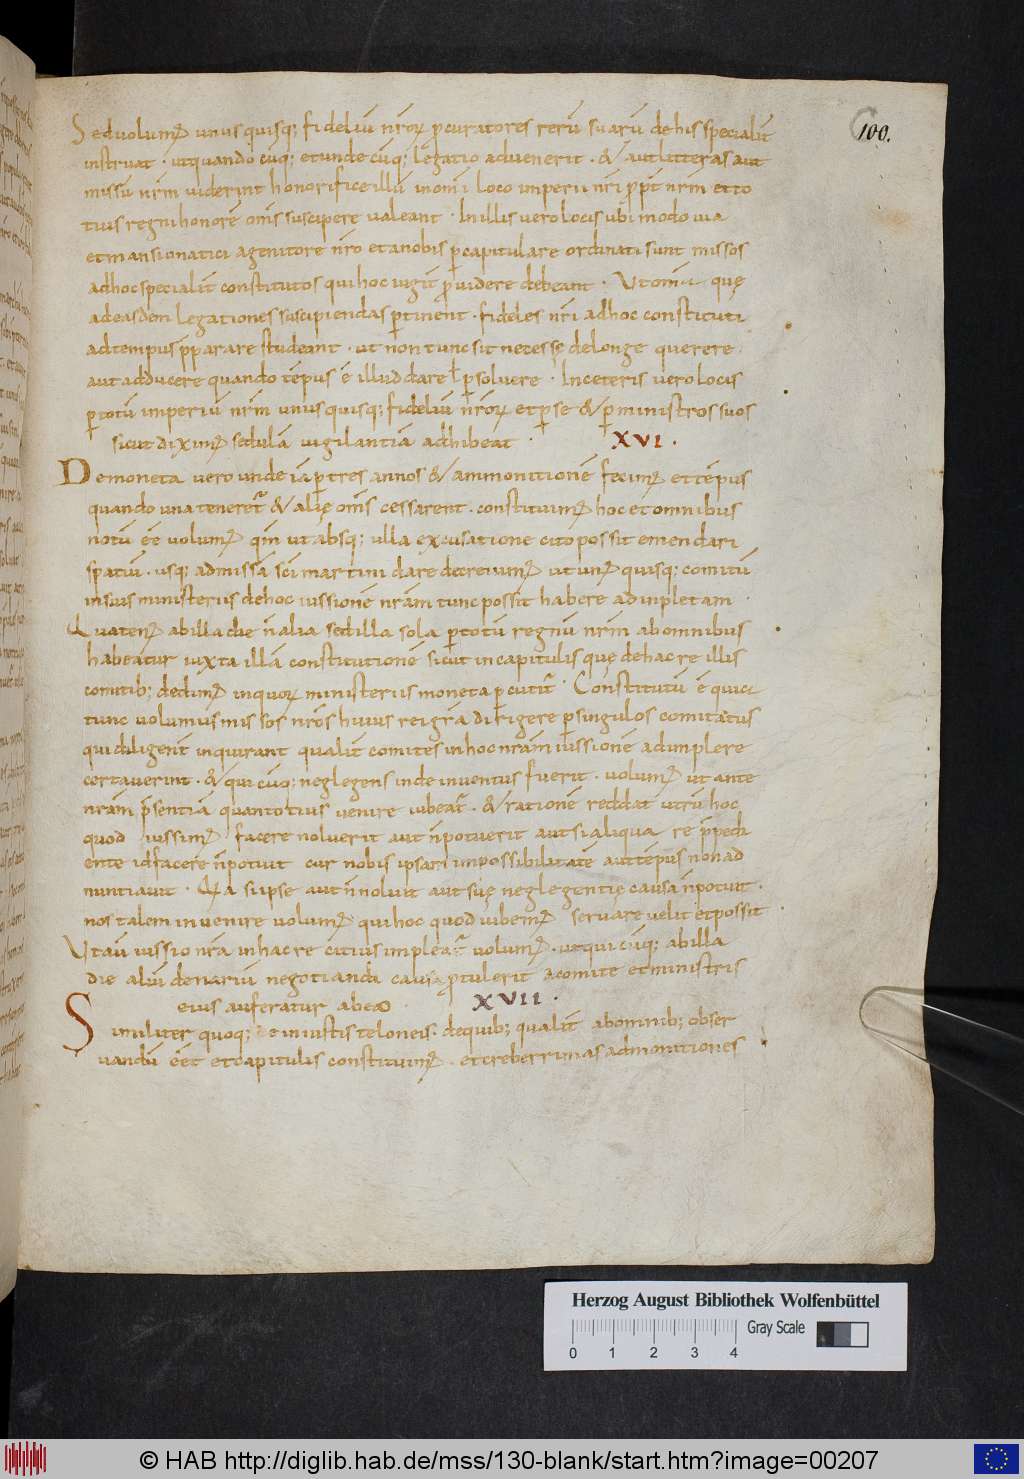 100.
Sed volum; unus quisq; fideliū nr̄oꝝ ꝓcuratores rerū suarū de his specialit̄
instruat · ut quando cūq; et unde cūq; legatio advenerit · & aut litteras aut
missū nr̄m viderint honorifice illū in om̄i loco imperii nr̄i ꝓpt̄ nr̄m et to
tius regni honorē om̄s suscipere valeant · In illis vero locis ubi modo via
et mansionatici a genitore nr̄o et a nobis ꝑ capitulare ordinati sunt missos
ad hoc specialit̄ constitutos qui hoc iugit̄ ꝓvidere debeant · Ut om̄ia quę
ad easdem legationes suscipiendas ꝑtinent · fideles nr̄i ad hoc constituti
ad tempus p̄parare studeant · ut non tunc sit necesse de longe querere
aut adducere quando tēpus ē illud dare ł ꝑsolvere · In ceteris vero locis
ꝑ totū imperiū nr̄m unus quisq; fideliū nr̄oꝝ et ꝑ se & ꝑ ministros suos
sicut dixim; sedulā vigilantiā adhibeat · XVI ·
De moneta vero unde iā ꝑ tres annos & ammonitionē fecim; et tēpus
quando una teneret̄ & alię om̄s cessarent · constituim; hoc et omnibus
notū eē volum; qm̄ ut absq; ulla excusatione cito possit emendari
spatiū · usq; ad missā sc̄i martini dare decrevim; ut unus quisq; comitū
in suis ministeriis de hoc iussionē nr̄am tunc possit habere adinpletam ·
Quaten; ab illa die n̄ alia sed illa sola ꝑ totū regnū nr̄m ab omnibus
habeatur iuxta illā constitutionē sicut in capitulis quę de hac re illis
comitib; dedim; in quoꝝ ministeriis moneta ꝑcutit̄ · Constitutū ē quia
tunc volumus missos nr̄os huius rei gr̄a dirigere ꝑ singulos comitatus
qui diligent̄ inquirant qualit̄ comites in hoc nr̄am iussionē adinplere
certaverint · & qui cūq; neglegens inde inventus fuerit · volum; ut ante
nr̄am p̄sentiā quantotius venire iubeat̄ · & rationē reddat utrū hoc
quod iussim; facere noluerit aut n̄ potuerit aut si aliqua re p̄pedi
ente id facere n̄ potuit cur nobis ipsam impossibilitatē aut tēpus non ad
nuntiavit · Qa si ipse aut n̄ noluit aut suę neglegentię causa n̄ potuit ·
nos talem invenire volum; qui hoc quod iubem; servare velit et possit ·
Ut aū iussio nr̄a in hac re citius impleat̄ volum; · ut qui cūq; ab illa
die aliū denariū negotiandi causa ꝓtulerit a comite et ministris
eius auferatur ab eo · XVII ·
Similiter quoq; de iniustis teloneis · de quib; qualit̄ ab omnib; obser
vandū eēt et capitulis constituim; · et creberrimas admonitiones
Herzog August Bibliothek Wolfenbüttel
Gray Scale
0 1 2 3 4
© HAB http://diglib.hab.de/mss/130-blank/start.htm?image=00207